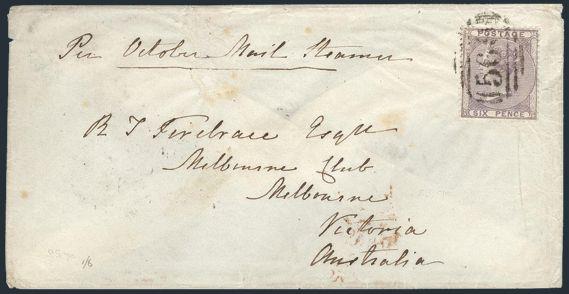 Per October Mail Steamer
POSTAGE
56
SIX PENCE
R T Firebrace Esqre
Melbourne Club
Melbourne
Victoria
Australia
1/6